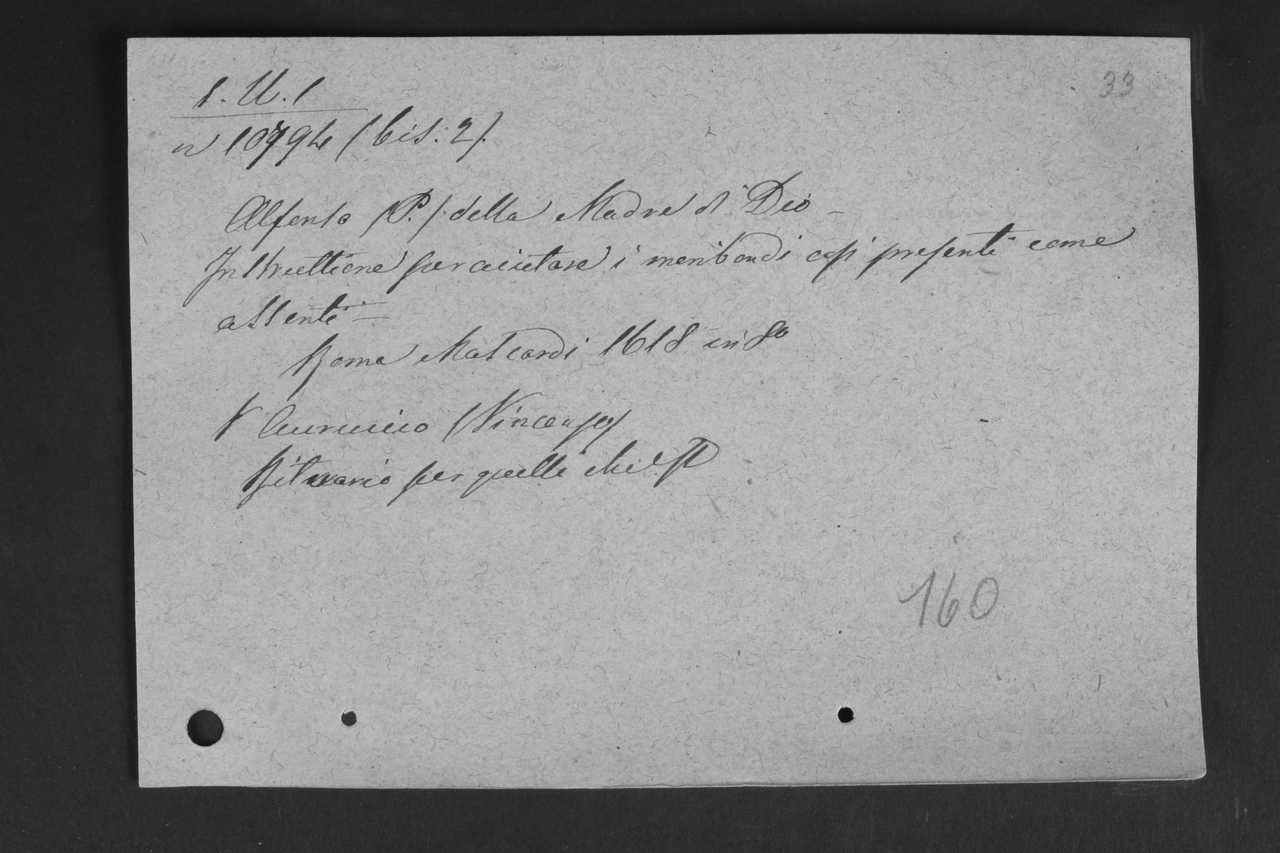 33
1. U. 1
n 10794 (bis: 2).
Alfonso (P.) della Madre di Dio -
Instruttione per aiutare i moribondi così presenti come
assenti =
Roma Mascardi 1618 in 8o
V Auruccio (Vincenzo)
Rituario per quelli che
160